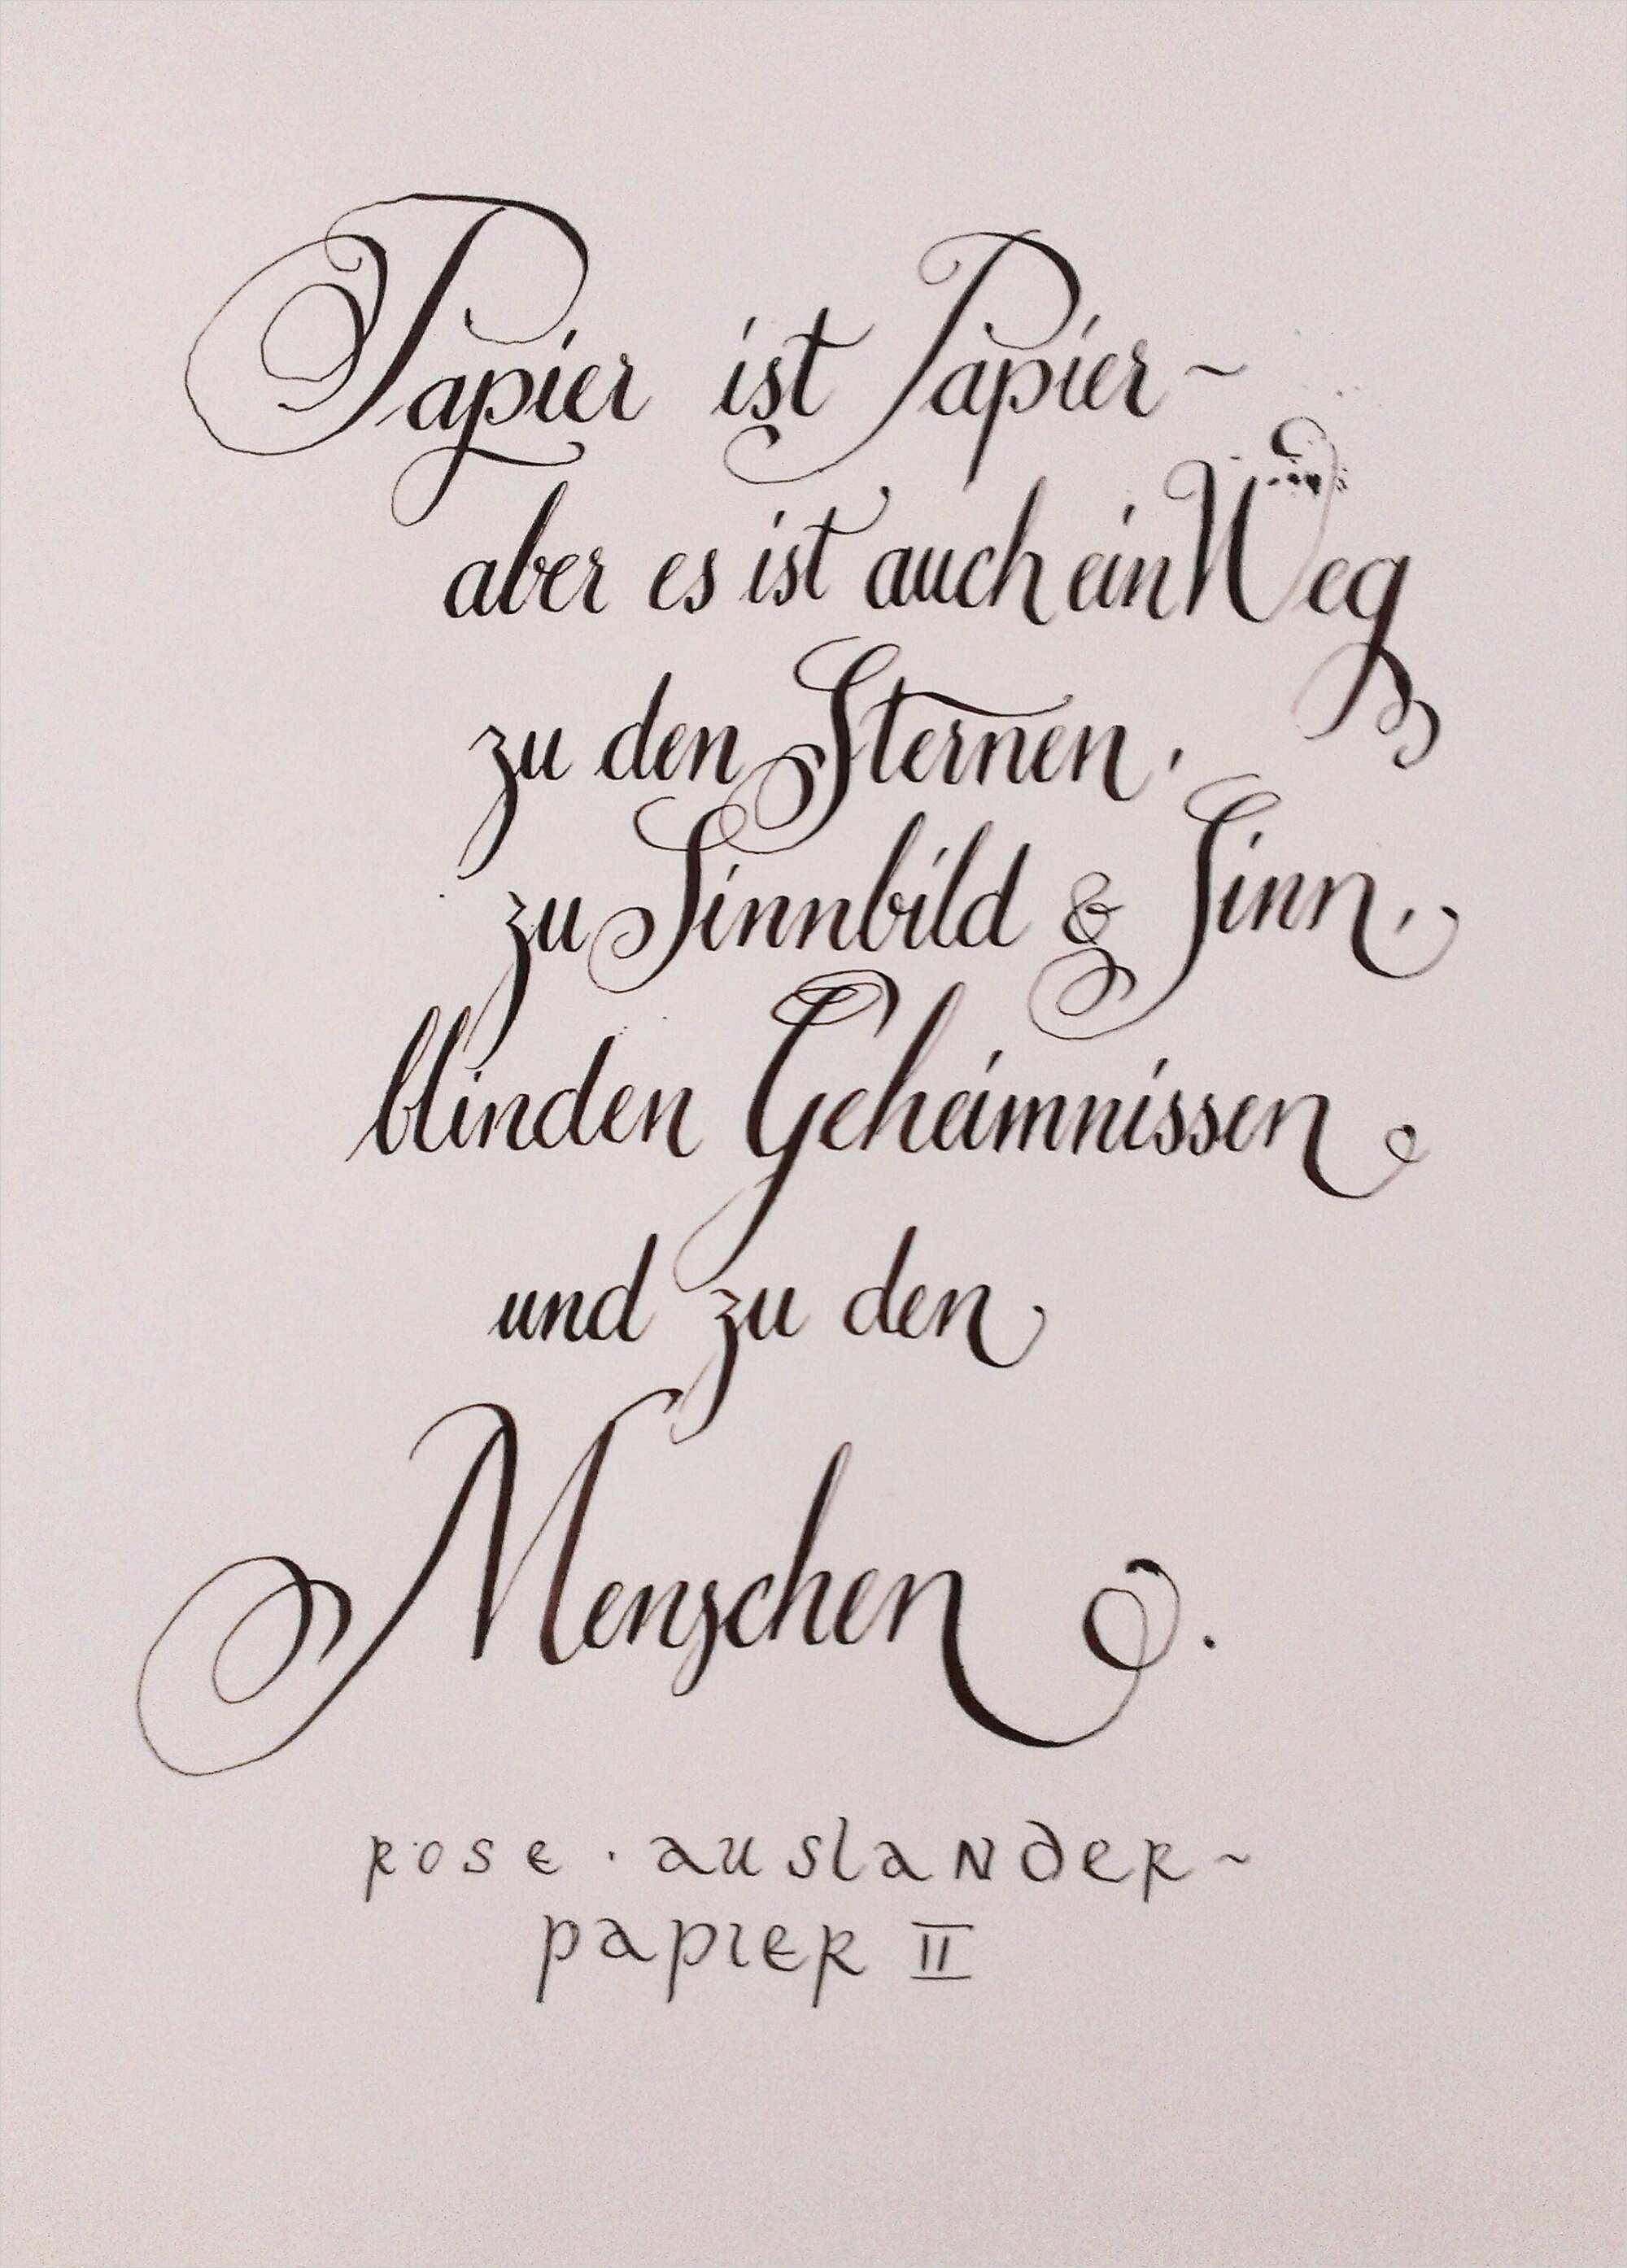 Papier ist Papier ~
aber es ist auch ein Weg
zu den Sternen,
zu Sinnbild & Sinn,
blinden Geheimnissen
und zu den
Menschen.
rose · auslander ~
papier II